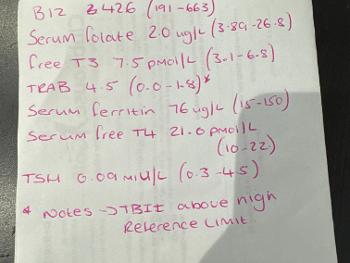 B12 426 (191-663)
Serum folate 2.0 ug/L (3.89-26.8)
free T3 7.5 pmol/L (3.1-6.8)
TRAB 4.5 (0.0-1.8)*
Serum ferritin 76 ug/L (15-150)
Serum free T4 21.0 pmol/L
(10-22)
TSH 0.09 miU/L (0.3-4.5)
* Notes → TBII above high
Reference Limit